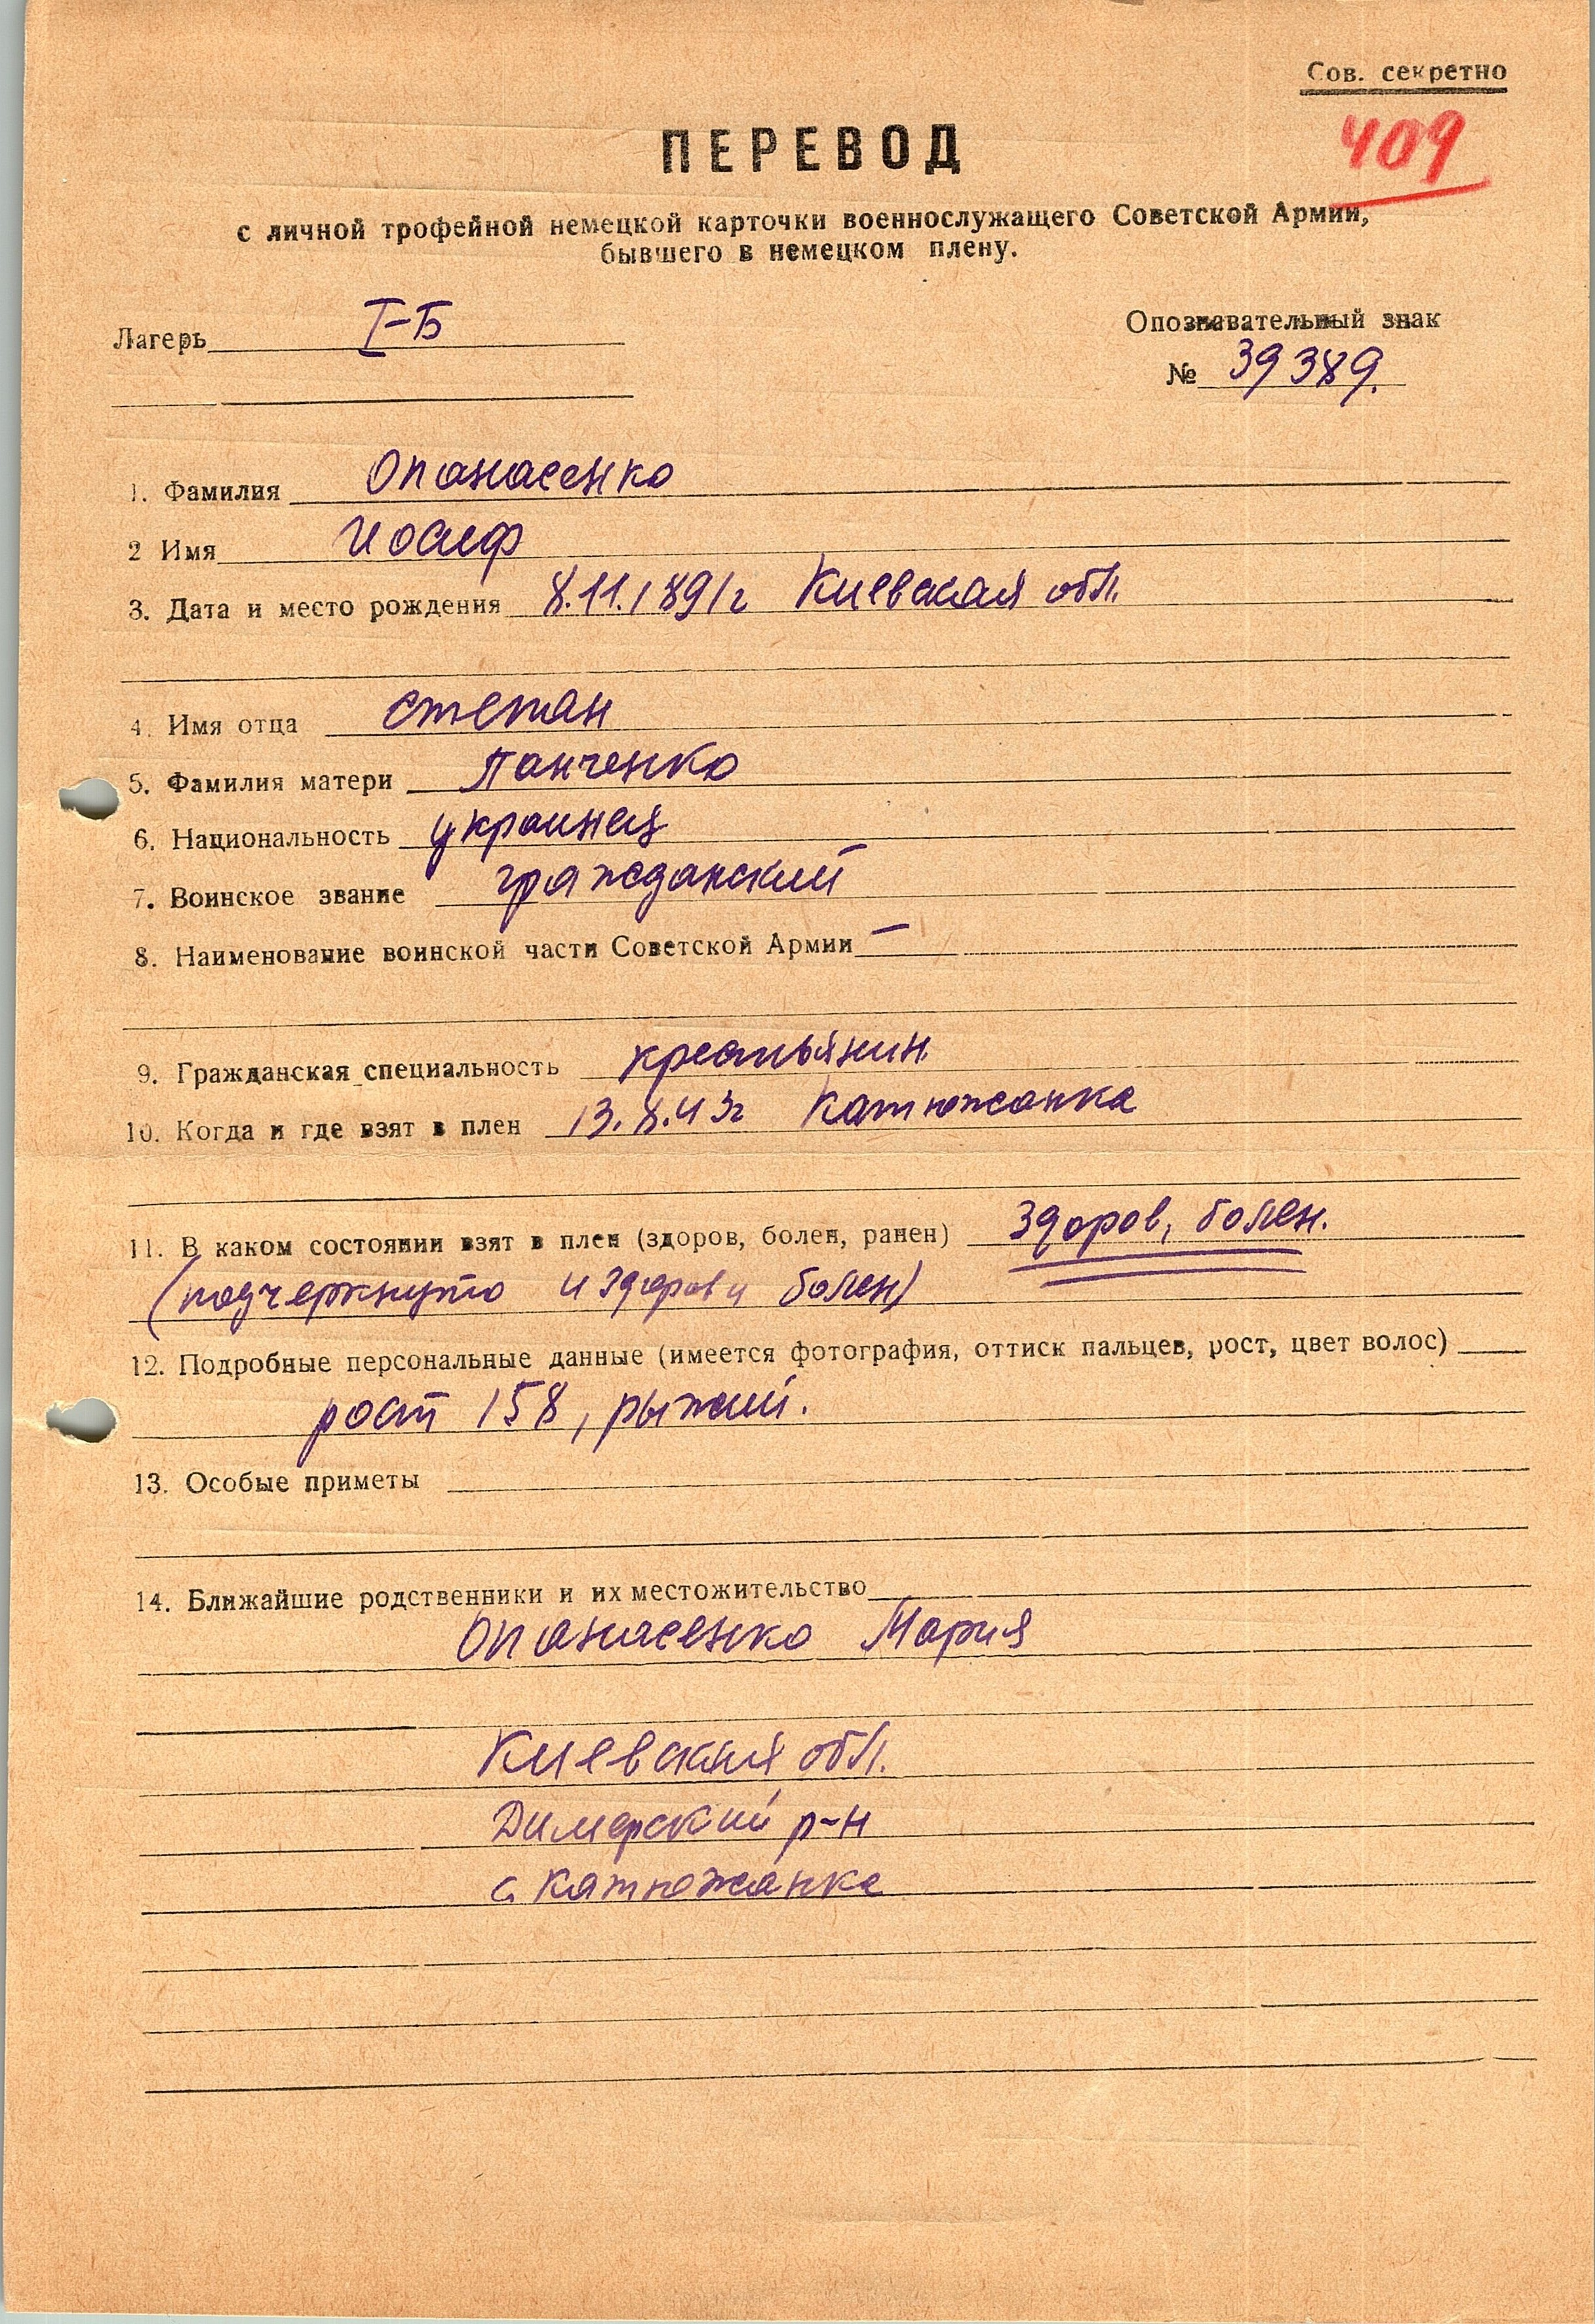 Сов. секретно
409
ПЕРЕВОД
с личной трофейной немецкой карточки военнослужащего Советской Армии,
бывшего в немецком плену.
Лагерь I-Б
Опознавательный знак
№ 39389.
1. Фамилия Опанасенко
2 Имя Иосиф
3. Дата и место рождения 8.11.1891г Киевская обл.
4. Имя отца Степан
5. Фамилия матери Панченко
6. Национальность украинец
7. Воинское звание гражданский
8. Наименование воинской части Советской Армии —
9. Гражданская специальность крестьянин
10. Когда и где взят в плен 13.8.43г Катюжанка
11. В каком состоянии взят в плен (здоров, болен, ранен) здоров, болен.
(подчеркнуто и здоров и болен)
12. Подробные персональные данные (имеется фотография, оттиск пальцев, рост, цвет волос)
рост 158, рыжий.
13. Особые приметы
14. Ближайшие родственники и их местожительство
Опанасенко Мария
Киевская обл.
Димерский р-н
с. Катюжанка